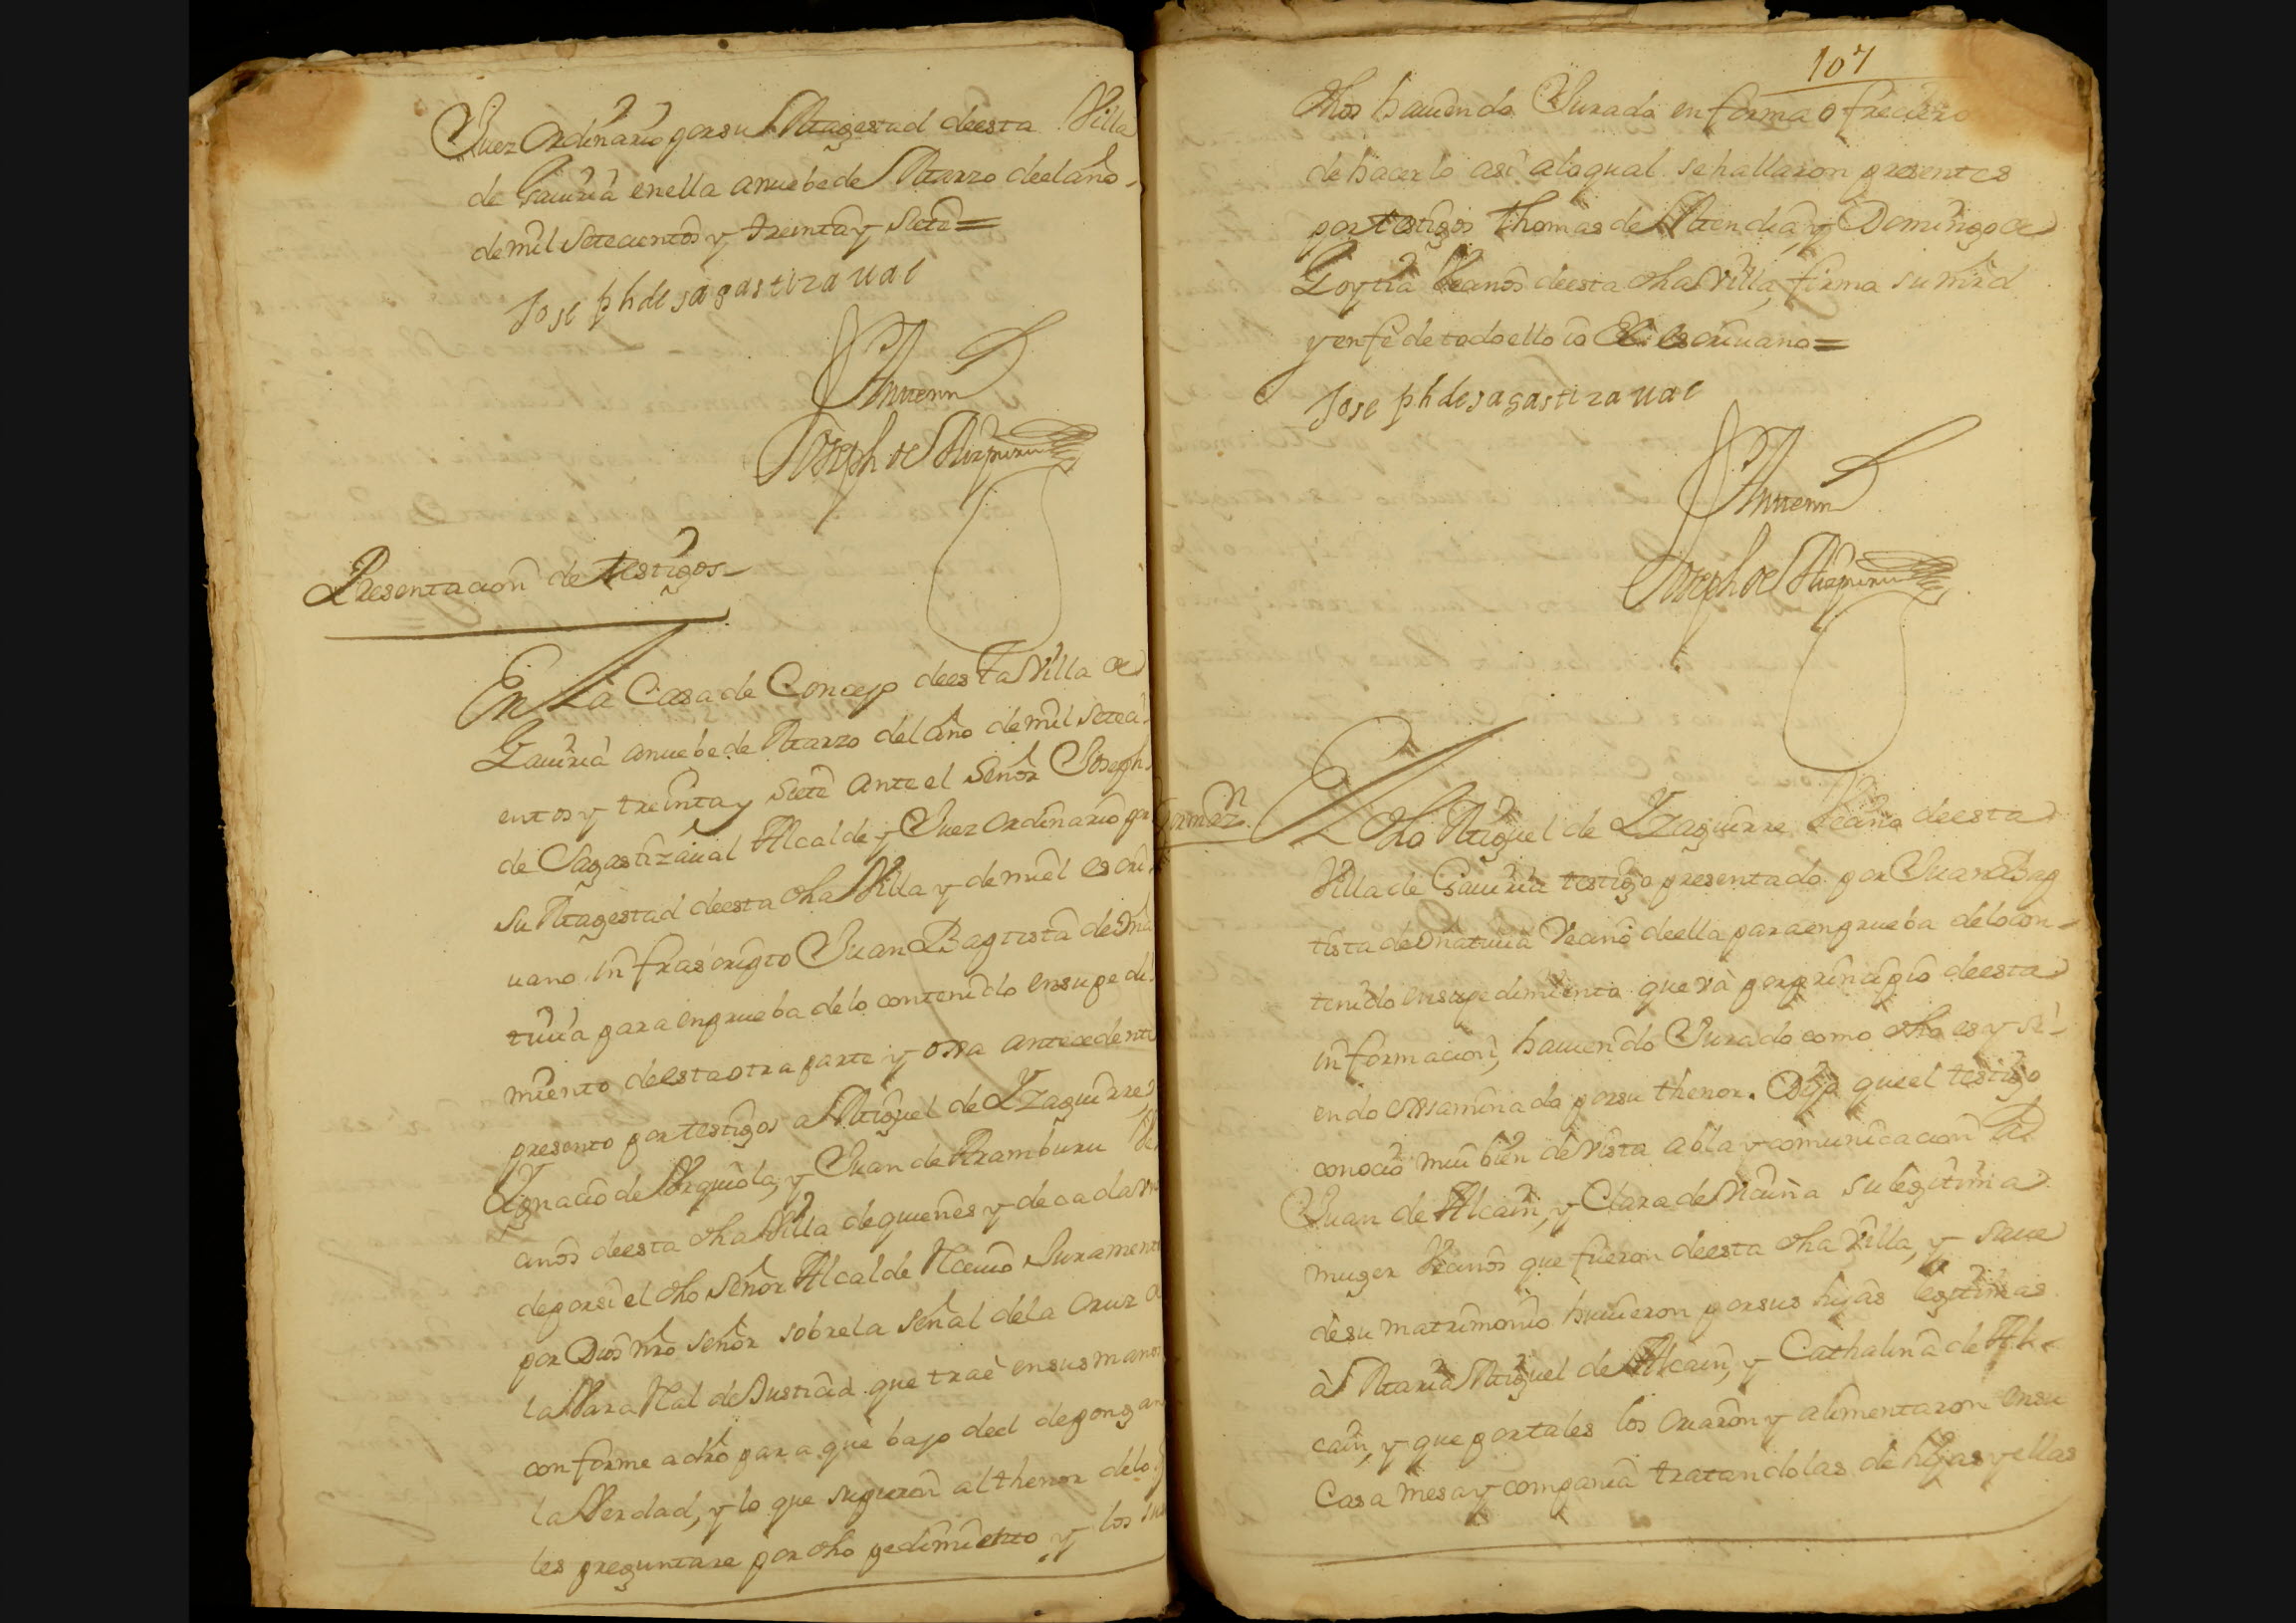 Juez Ordinario por su Magestad deesta Villa
de Gauiria enella anuebe de Marzo deel año
de mil setecientos y treinta y siete=
Joseph de sagastizaual
Antemi
Joseph de
Presentacion de testigos
En La Casa de Concejo deesta Villa de
Gauiria anuebe de Marzo del año de mil seteci
entos y treinta y siete ante el Señor Joseph
de Sagastizaual Alcalde y Juez Ordinario por
su Magestad deesta dha Villa y de mi el escri
uano infrascripto Juan Baptista de
para enprueba delo contenido ensu pedi
miento deesta otra parte y oxa antecedente
presento por testigos a Miguel de Yzaguirre
Ygnacio de Vrquiola, y Juan de Aramburu Ve
anos deesta dha Villa dequienes y decada vno
deporsi el dho Señor Alcalde Rceuio Juramento
por Dios nro señor sobrela señal dela Cruz de
la Vara Ral de Justicia que trae ensus manos
conforme adro para que bajo deel depongan
la Verdad, y lo que supieron althenor delo q
les preguntare por dho pedimiento y los suso
107
dhos hauiendo Jurado enforma ofreciero
de hacerlo asi aloqual sehallaron presentes
por testigos Thomas de Mendia, y Domingo de
Goytia Veanos deesta dha Villa, firma su mrd
y enfe de todo ello io El escriuano=
Joseph de sagastizaual
Antemi
Joseph de
El dho Miguel de Yzaguirre Veano deesta
Villa de Gauiria testigo presentado por Juan Bap
tista de Veano deella para enprueba delo con
tenido ensupedimiento que và por principio deesta
informacion, hauiendo Jurado como dho es y si
endo exsaminado porsu thenor. Dijo queel testigo
conocio mui bien de vista abla y comunicacion a
Juan de Alcain, y Clara de Vicuña su legitima
muger Veanos que fueron deesta dha Villa, y saue
desu matrimonio huuieron porsus hijas legitimas
à Maria Miguel de Alcain, y Cathalina de Al
cain, y que portales los criaron y alimentaron ensu
Casa mesa y compania tratandolas de hijas y ellas